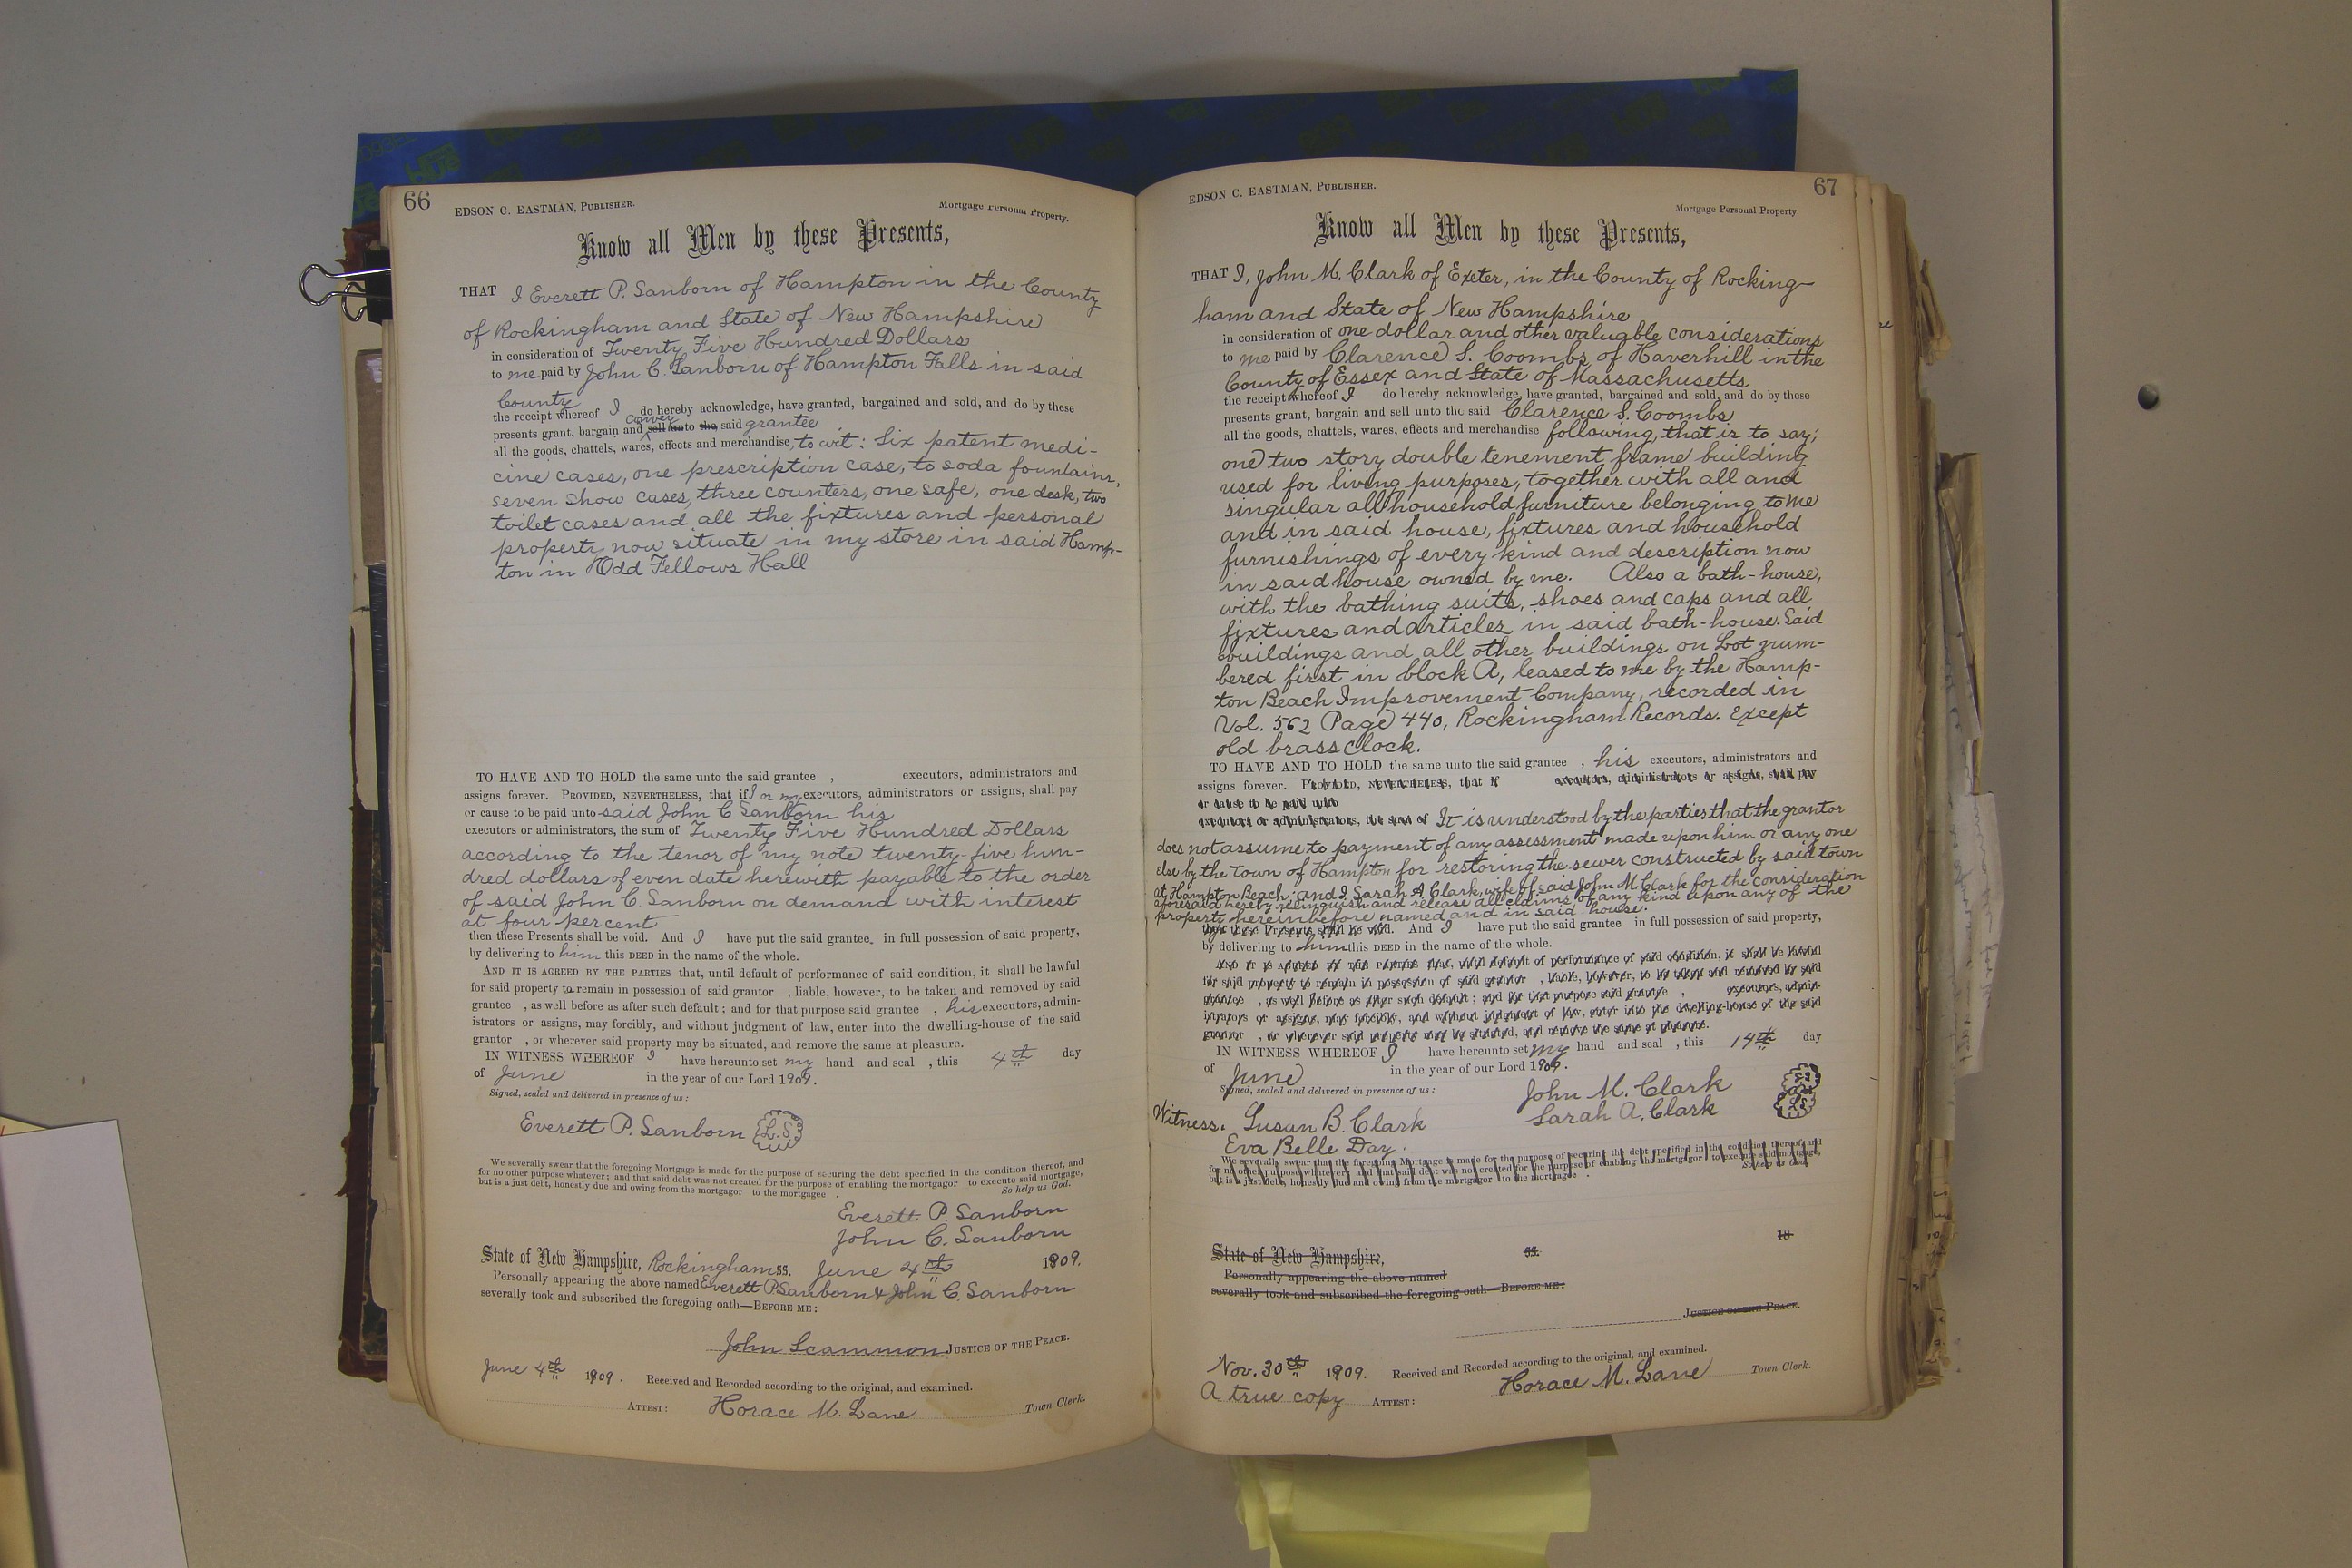 66
EDSON C. EASTMAN, PUBLISHER.
Mortgage Personal Property.
Know all Men by these Presents,
THAT I Everett P. Sanborn of Hampton in the County
of Rockingham and State of New Hampshire
in consideration of Twenty Five Hundred Dollars
to me paid by John C. Sanborn of Hampton Falls in said
County
the receipt whereof I do hereby acknowledge, have granted, bargained and sold, and do by these
convey
presents grant, bargain and sell unto the said grantee
all the goods, chattels, wares, effects and merchandise, to wit: Six patent medi-
cine cases, one prescription case, to soda fountains,
seven show cases, three counters, one safe, one desk, two
toilet cases and all the fixtures and personal
property now situate in my store in said Hamp-
ton in Odd Fellows Hall
TO HAVE AND TO HOLD the same unto the said grantee , executors, administrators and
assigns forever. PROVIDED, NEVERTHELESS, that if I or my executors, administrators or assigns, shall pay
or cause to be paid unto said John C. Sanborn his
executors or administrators, the sum of Twenty Five Hundred Dollars
according to the tenor of my note twenty-five hun-
dred dollars of even date herewith payable to the order
of said John C. Sanborn on demand with interest
at four percent
then these Presents shall be void. And I have put the said grantee in full possession of said property,
by delivering to him this DEED in the name of the whole.
AND IT IS AGREED BY THE PARTIES that, until default of performance of said condition, it shall be lawful
for said property to remain in possession of said grantor , liable, however, to be taken and removed by said
grantee , as well before as after such default ; and for that purpose said grantee , his executors, admin-
istrators or assigns, may forcibly, and without judgment of law, enter into the dwelling-house of the said
grantor , or wherever said property may be situated, and remove the same at pleasure.
IN WITNESS WHEREOF I have hereunto set my hand and seal , this 4th day
of June in the year of our Lord 1909.
Signed, sealed and delivered in presence of us :
Everett P. Sanborn L.S.
We severally swear that the foregoing Mortgage is made for the purpose of securing the debt specified in the condition thereof, and
for no other purpose whatever ; and that said debt was not created for the purpose of enabling the mortgagor to execute said mortgage,
but is a just debt, honestly due and owing from the mortgagor to the mortgagee .
So help us God.
Everett P. Sanborn
John C. Sanborn
State of New Hampshire, Rockingham ss. June 4th 1909.
Personally appearing the above named Everett P Sanborn & John C. Sanborn
severally took and subscribed the foregoing oath—BEFORE ME :
John Scammon JUSTICE OF THE PEACE.
June 4th 1909. Received and Recorded according to the original, and examined.
ATTEST: Horace M. Lane Town Clerk.
67
EDSON C. EASTMAN, PUBLISHER.
Mortgage Personal Property
Know all Men by these Presents,
THAT I, John M. Clark of Exeter, in the County of Rocking-
ham and State of New Hampshire
in consideration of one dollar and other valuable considerations
to me paid by Clarence S. Coombs of Haverhill in the
County of Essex and State of Massachusetts
the receipt whereof I do hereby acknowledge, have granted, bargained and sold, and do by these
presents grant, bargain and sell unto the said Clarence S. Coombs
all the goods, chattels, wares, effects and merchandise following, that is to say;
one two story double tenement frame building
used for living purposes, together with all and
singular all household furniture belonging to me
and in said house, fixtures and household
furnishings of every kind and description now
in said house owned by me. Also a bath-house,
with the bathing suits, shoes and caps and all
fixtures and articles in said bath-house. Said
buildings and all other buildings on Lot num-
bered first in block A, leased to me by the Hamp-
ton Beach Improvement Company, recorded in
Vol. 562 Page 440, Rockingham Records. Except
old brass clock.
TO HAVE AND TO HOLD the same unto the said grantee , his executors, administrators and
assigns forever. PROVIDED, NEVERTHELESS, that if executors, administrators or assigns, shall pay
or cause to be paid unto
executors or administrators, the sum of It is understood by the parties that the grantor
does not assume to payment of any assessment made upon him or any one
else by the town of Hampton for restoring the sewer constructed by said town
at Hampton Beach, and I Sarah A Clark, wife of said John M Clark for the consideration
aforesaid hereby relinquish and release all claims of any kind upon any of the
property hereinbefore named and in said house.
then these Presents shall be void. And I have put the said grantee in full possession of said property,
by delivering to him this DEED in the name of the whole.
AND IT IS AGREED BY THE PARTIES that, until default of performance of said condition, it shall be lawful
for said property to remain in possession of said grantor , liable, however, to be taken and removed by said
grantee , as well before as after such default ; and for that purpose said grantee , executors, admin-
istrators or assigns, may forcibly, and without judgment of law, enter into the dwelling-house of the said
grantor , or wherever said property may be situated, and remove the same at pleasure.
IN WITNESS WHEREOF I have hereunto set my hand and seal , this 14th day
of June in the year of our Lord 1909.
Signed, sealed and delivered in presence of us :
John M. Clark L.S.
Sarah A. Clark L.S.
Witness. Susan B. Clark
Eva Belle Day.
We severally swear that the foregoing Mortgage is made for the purpose of securing the debt specified in the condition thereof, and
for no other purpose whatever ; and that said debt was not created for the purpose of enabling the mortgagor to execute said mortgage,
but is a just debt, honestly due and owing from the mortgagor to the mortgagee .
So help us God.
State of New Hampshire, ss. 18
Personally appearing the above named
severally took and subscribed the foregoing oath—BEFORE ME :
JUSTICE OF THE PEACE.
Nov. 30th 1909. Received and Recorded according to the original, and examined.
A true copy ATTEST: Horace M. Lane Town Clerk.